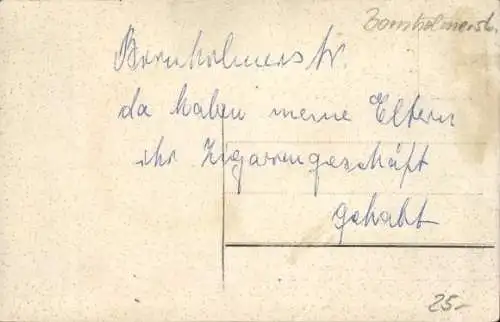 Bornholmerstr.
Bornholmerstr.
da haben meine Eltern
ihr Zigarrengeschäft
gehabt
25.-